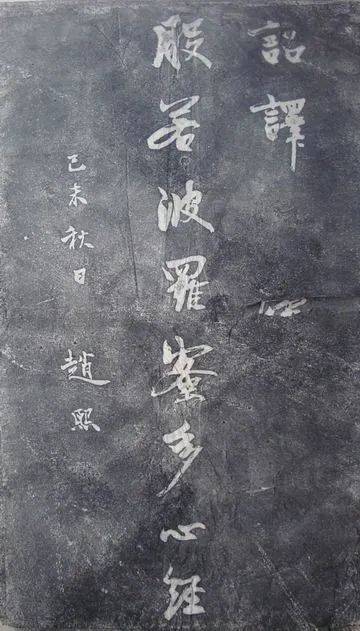 詔譯
般若波羅蜜多心經
己未秋日 趙熙